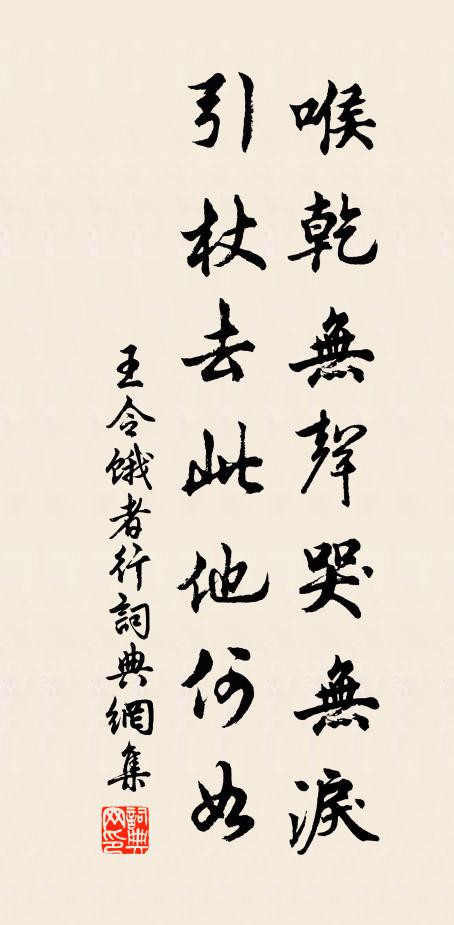 喉乾無聲哭無淚
引杖去此他何如
王令餓者行詞典網集
詞典网印